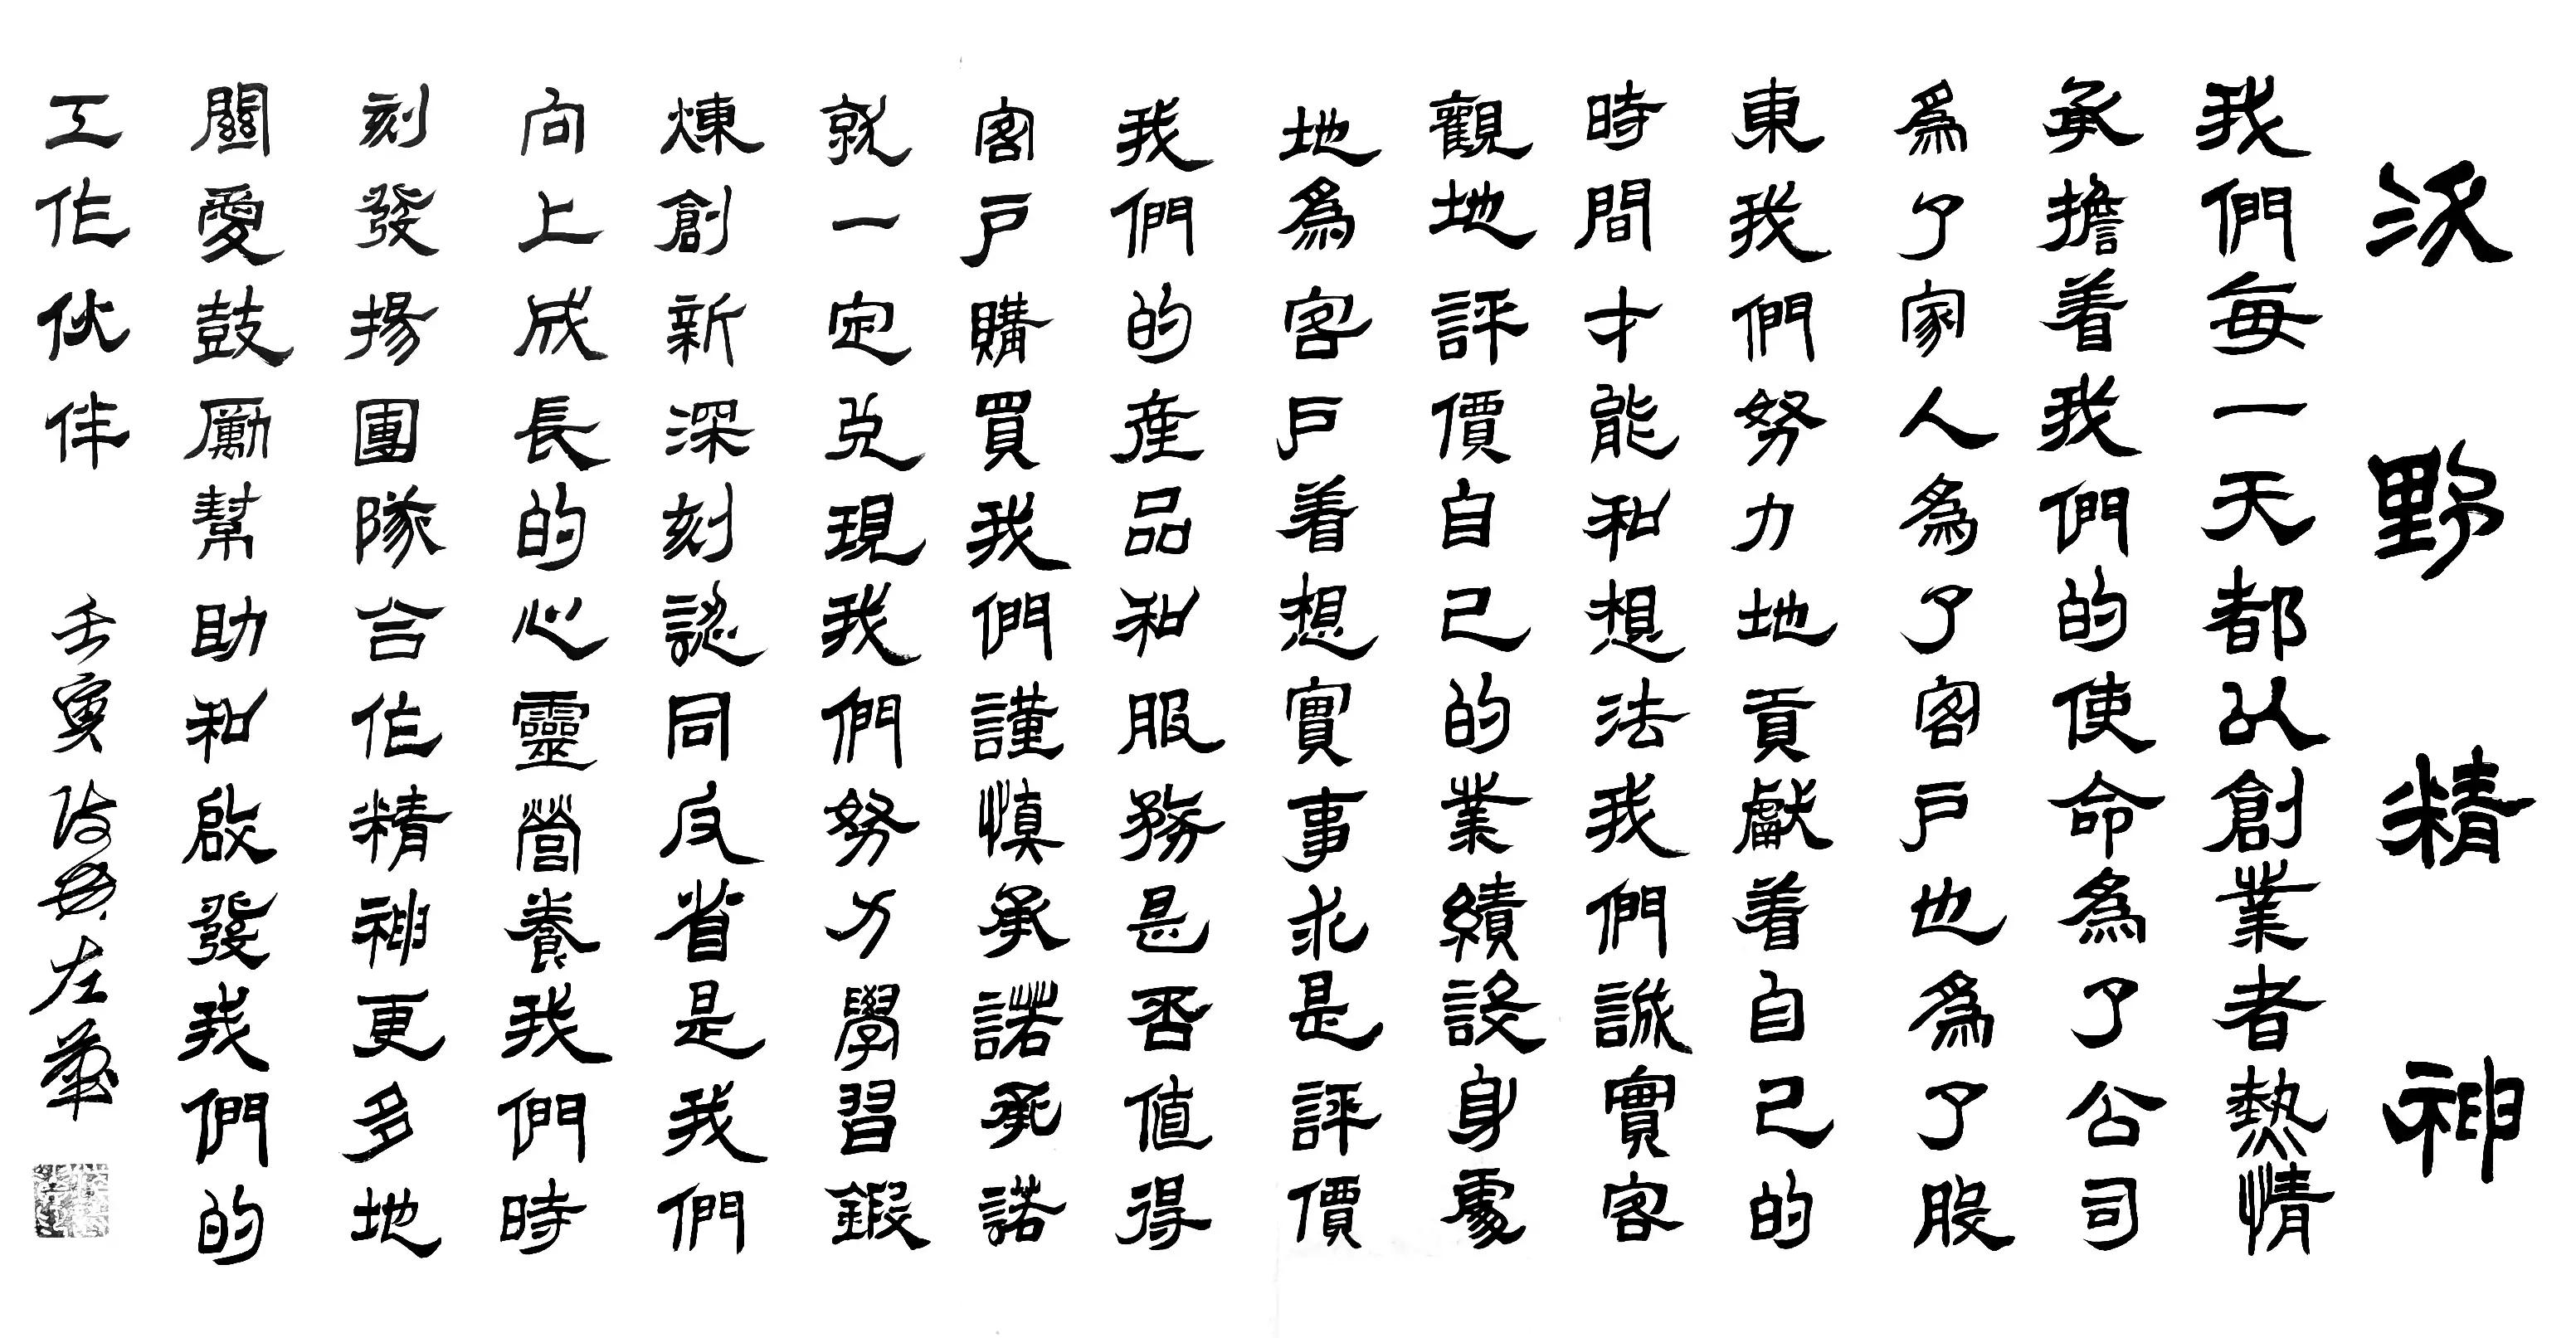 沃野精神
我們每一天都以創業者熱情
承擔着我們的使命爲了公司
爲了家人爲了客戶也爲了股
東我們努力地貢獻着自己的
時間才能和想法我們誠實客
觀地評價自己的業績設身處
地爲客戶着想實事求是評價
我們的産品和服務是否值得
客戶購買我們謹慎承諾承諾
就一定兑現我們努力學習鍛
煉創新深刻認同反省是我們
向上成長的心靈營養我們時
刻發揚團隊合作精神更多地
關愛鼓勵幫助和啟發我們的
工作伙伴
壬寅 左華